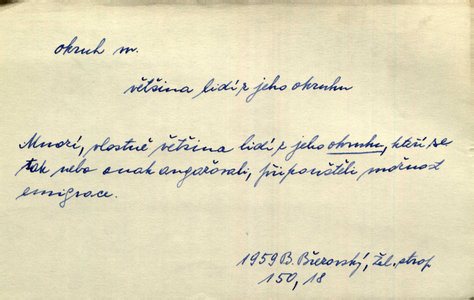 okruh m.
většina lidí z jeho okruhu
Mnozí, vlastně většina lidí z jeho okruhu, kteří se
tak nebo onak angažovali, připouštěli možnost
emigrace.
1959 B. Březovský, Žel. strop
150, 18